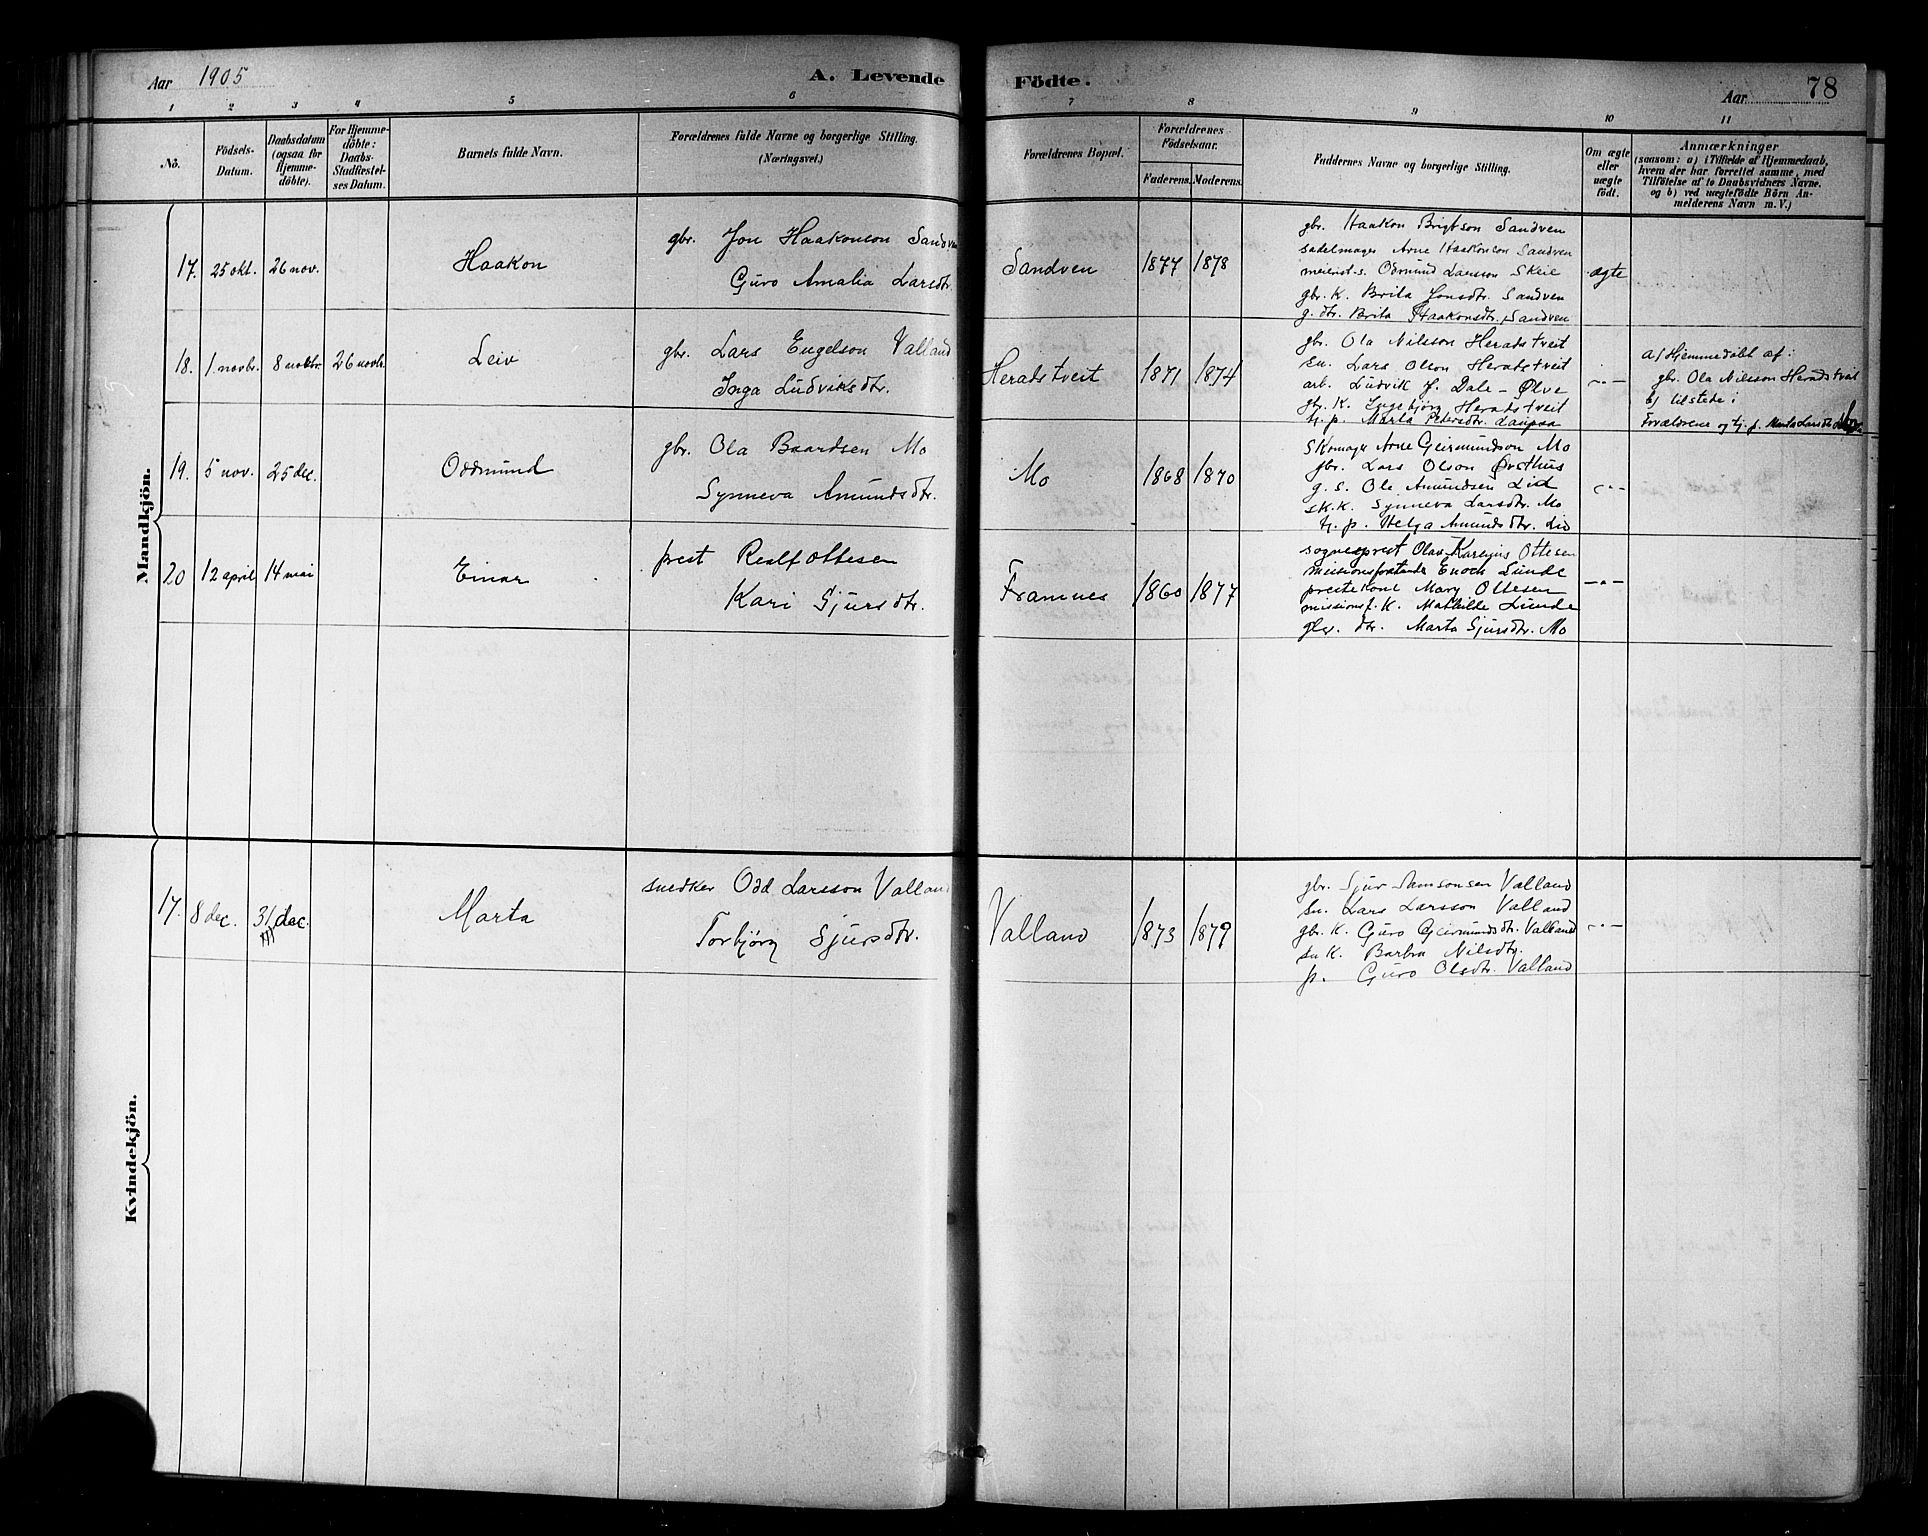 Aar 1905
A. Levende
Födte.
Aar
78
1 2 3 4 5 6 7 8 9 10 11
No.
Födsels-
Datum.
Daabsdatum
(ogsaa for
Hjemme-
döbte).
For Hjemme-
döbte:
Daabs-
Stadfæstel-
ses Datum.
Barnets fulde Navn.
Forældrenes fulde Navne og borgerlige Stilling.
(Næringsvei.)
Forældrenes Bopæl.
Forældrenes
Födselsaar.
Faderens. Moderens.
Faddernes Navne og borgerlige Stilling.
Om ægte
eller
uægte
födt.
Anmærkninger
(saasom: a) i Tilfælde af Hjemmedaab,
hvem der har forrettet samme, med
Tilföielse af to Daabsvidners Navne.
og b) ved uægtefödte Börn An-
melderens Navn m. V.)
Mandkjön.
17. 25 okt. 26 nov.
Haakon
gbr. Jon Haakonson Sandven
Guro Amalia Larsdtr.
Sandven
1877 1878
gbr. Haakon Brigtson Sandven
sadelmager Arne Haakonson Sandven
meierist.s. Odmund Larsson Skeie
gbr. K. Brita Jonsdtr. Sandven
g. dtr. Brita Haakonsdtr. Sandven
ægte
18. 1 novbr. 8 novbr. 26 novbr.
Leiv
gbr. Lars Engelson Valland
Inga Ludviksdtr.
Heradstveit
1871 1874
gbr. Ola Nilsson Heradstveit
en. Lars Olson Heradstveit
arb. Ludvik J. Dale - Ølve
gbr. K. Ingebjørg Heradstveit
tj. p. Marta Petersdtr. Laupaa
-"-
a/ Hjemmedøbt af:
gbr. Ola Nilsson Heradstveit
b/ tilstede:
Forældrene og tj. p. Marta Larsdtr
19. 5 nov. 25 dec.
Oddmund
gbr. Ola Baardsen Mo
Synneva Amundsdtr.
Mo
1868 1870
Skomager Arne Geirmundson Mo
gbr. Lars Olson Øvsthus
g. s. Ola Amundsen Lid
sk. K. Synneva Larsdtr. Mo
tj. p. Helga Amundsdtr. Lid
-"-
20 12 april 14 mai
Einar
prest Realf Ottesen
Kari Sjursdtr.
Framnes
1860 1877
sogneprest Olav Karenius Ottesen
missionsforstander Enoch Lunde
prestekone Mary Ottesen
missionsf. K. Mathilde Lunde
gbr. dtr. Marta Sjursdtr. Mo
-"-
Kvindekjön.
17. 8 dec. 31/dec.
Marta
snedker Odd Larsson Valland
Torbjørg Sjursdtr.
Valland
1873 1879
gbr. Sjur Samsonsen Valland
sn. Lars Larsson Valland
gbr. K. Guro Geirmundsdtr. Valland
sn K. Barbra Nilsdtr.
p. Guro Olsdtr. Valland
-"-